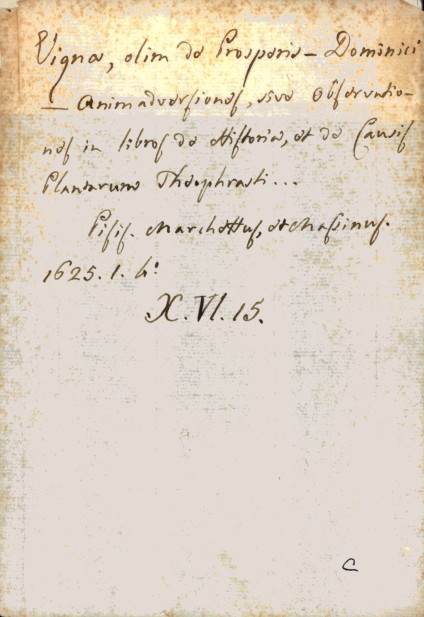 Vignæ, olim de Prosperis - Dominici
- Animadversiones, sive Observatio-
nes in libros de Historia, et de Causis
Plantarum Theophrasti...
Pisis. Marchettus, et Massinus.
1625. 1. 4.º
X. VI. 15.
C